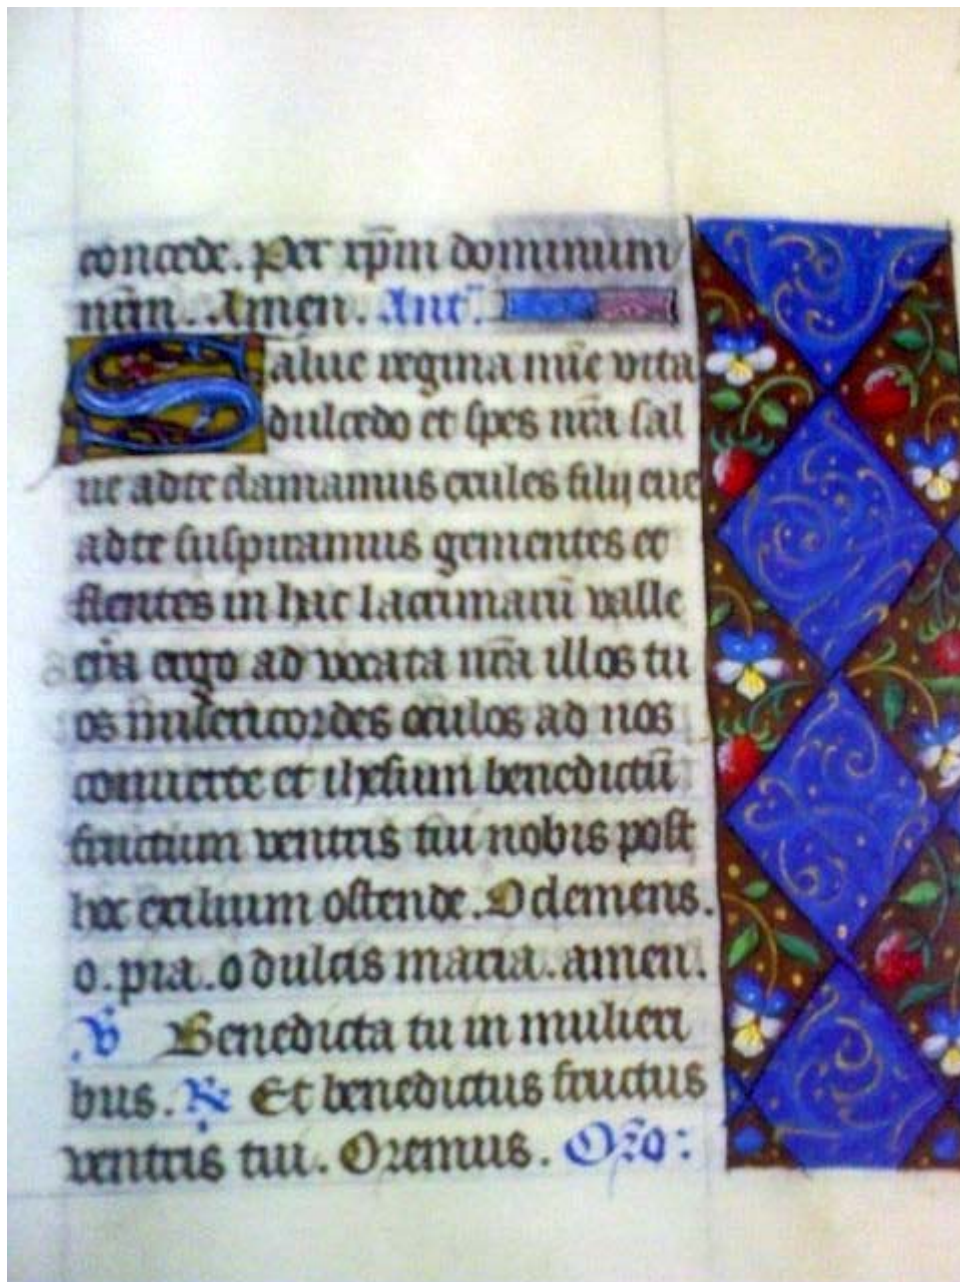 concede. Per xp̄m dominum
nr̄m. Amen. Ant̄.
Salue regina mīe vita
dulcedo et spes nr̄a sal
ue ad te clamamus exules filij eue
ad te suspiramus gementes et
flentes in hac lacrimarū valle
eya ergo ad uocata nr̄a illos tu
os misericordes oculos ad nos
conuerte et ihesum benedictū
fructum ventris tui nobis post
hoc exilium ostende. O clemens.
o. pia. o dulcis maria. amen.
℣ Benedicta tu in mulieri
bus. ℟ Et benedictus fructus
ventris tui. Oremus. Or̄o: